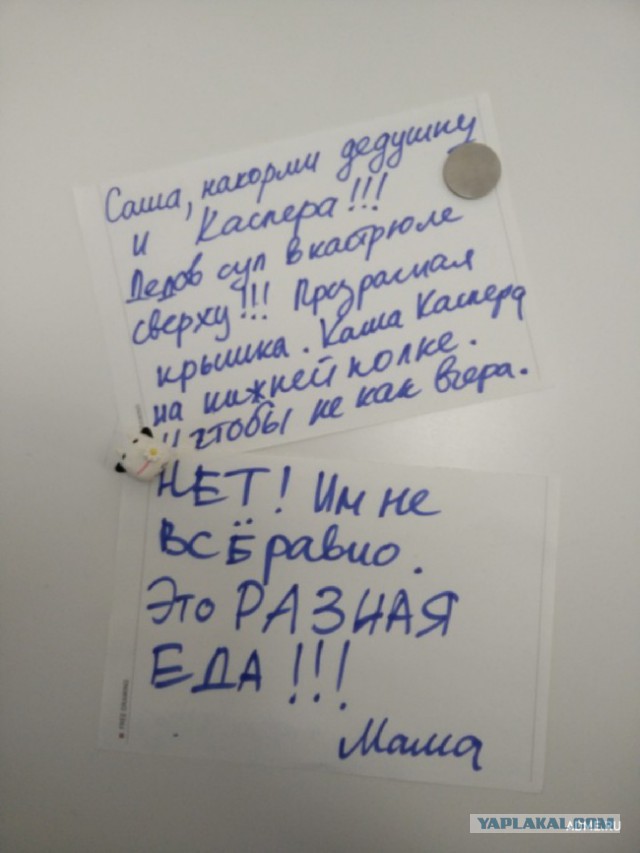 Саша, накорми дедушку
и Каспера!!!
Дедов суп в кастрюле
сверху!!! Прозрачная
крышка. Каша Каспера
на нижней полке.
И чтобы не как вчера.
НЕТ! Им не
ВСЁ равно.
Это РАЗНАЯ
ЕДА!!!
Мама
FREE DRAWING
YAPLAKAL.COM
ADME.RU